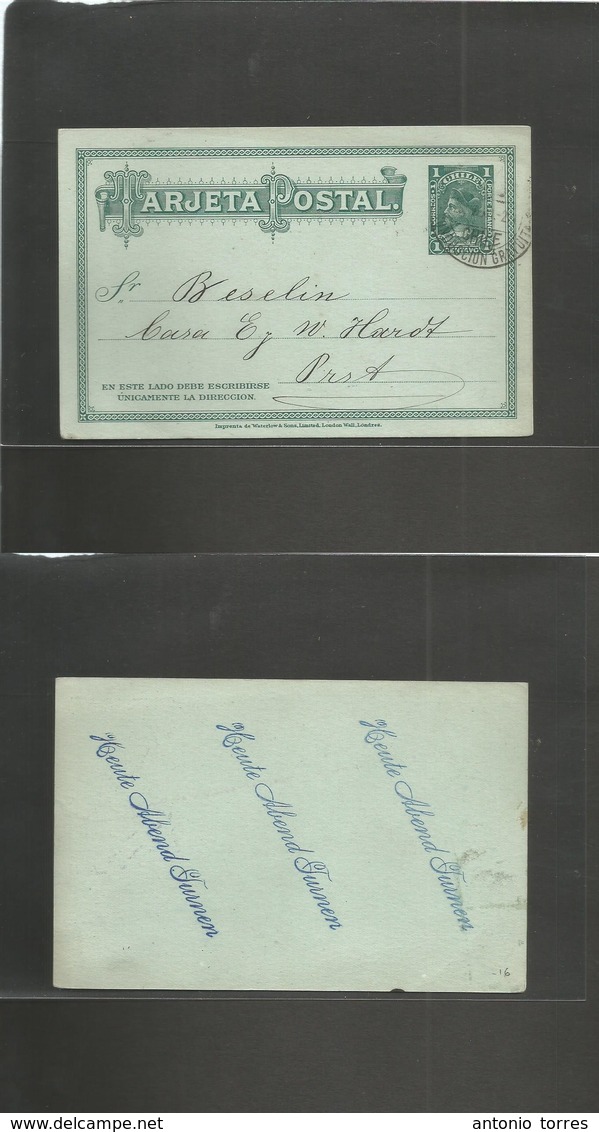 TARJETA POSTAL.
1 CHILE 1
1 CENTAVO 1
GRATUITA
Sr Beselin
Casa E y W. Hardt
Prst
EN ESTE LADO DEBE ESCRIBIRSE
ÚNICAMENTE LA DIRECCION.
Imprenta de Waterlow & Sons, Limited, London Wall, Lóndres.
Heute Abend Turnen
Heute Abend Turnen
Heute Abend Turnen
-16
antonio torres